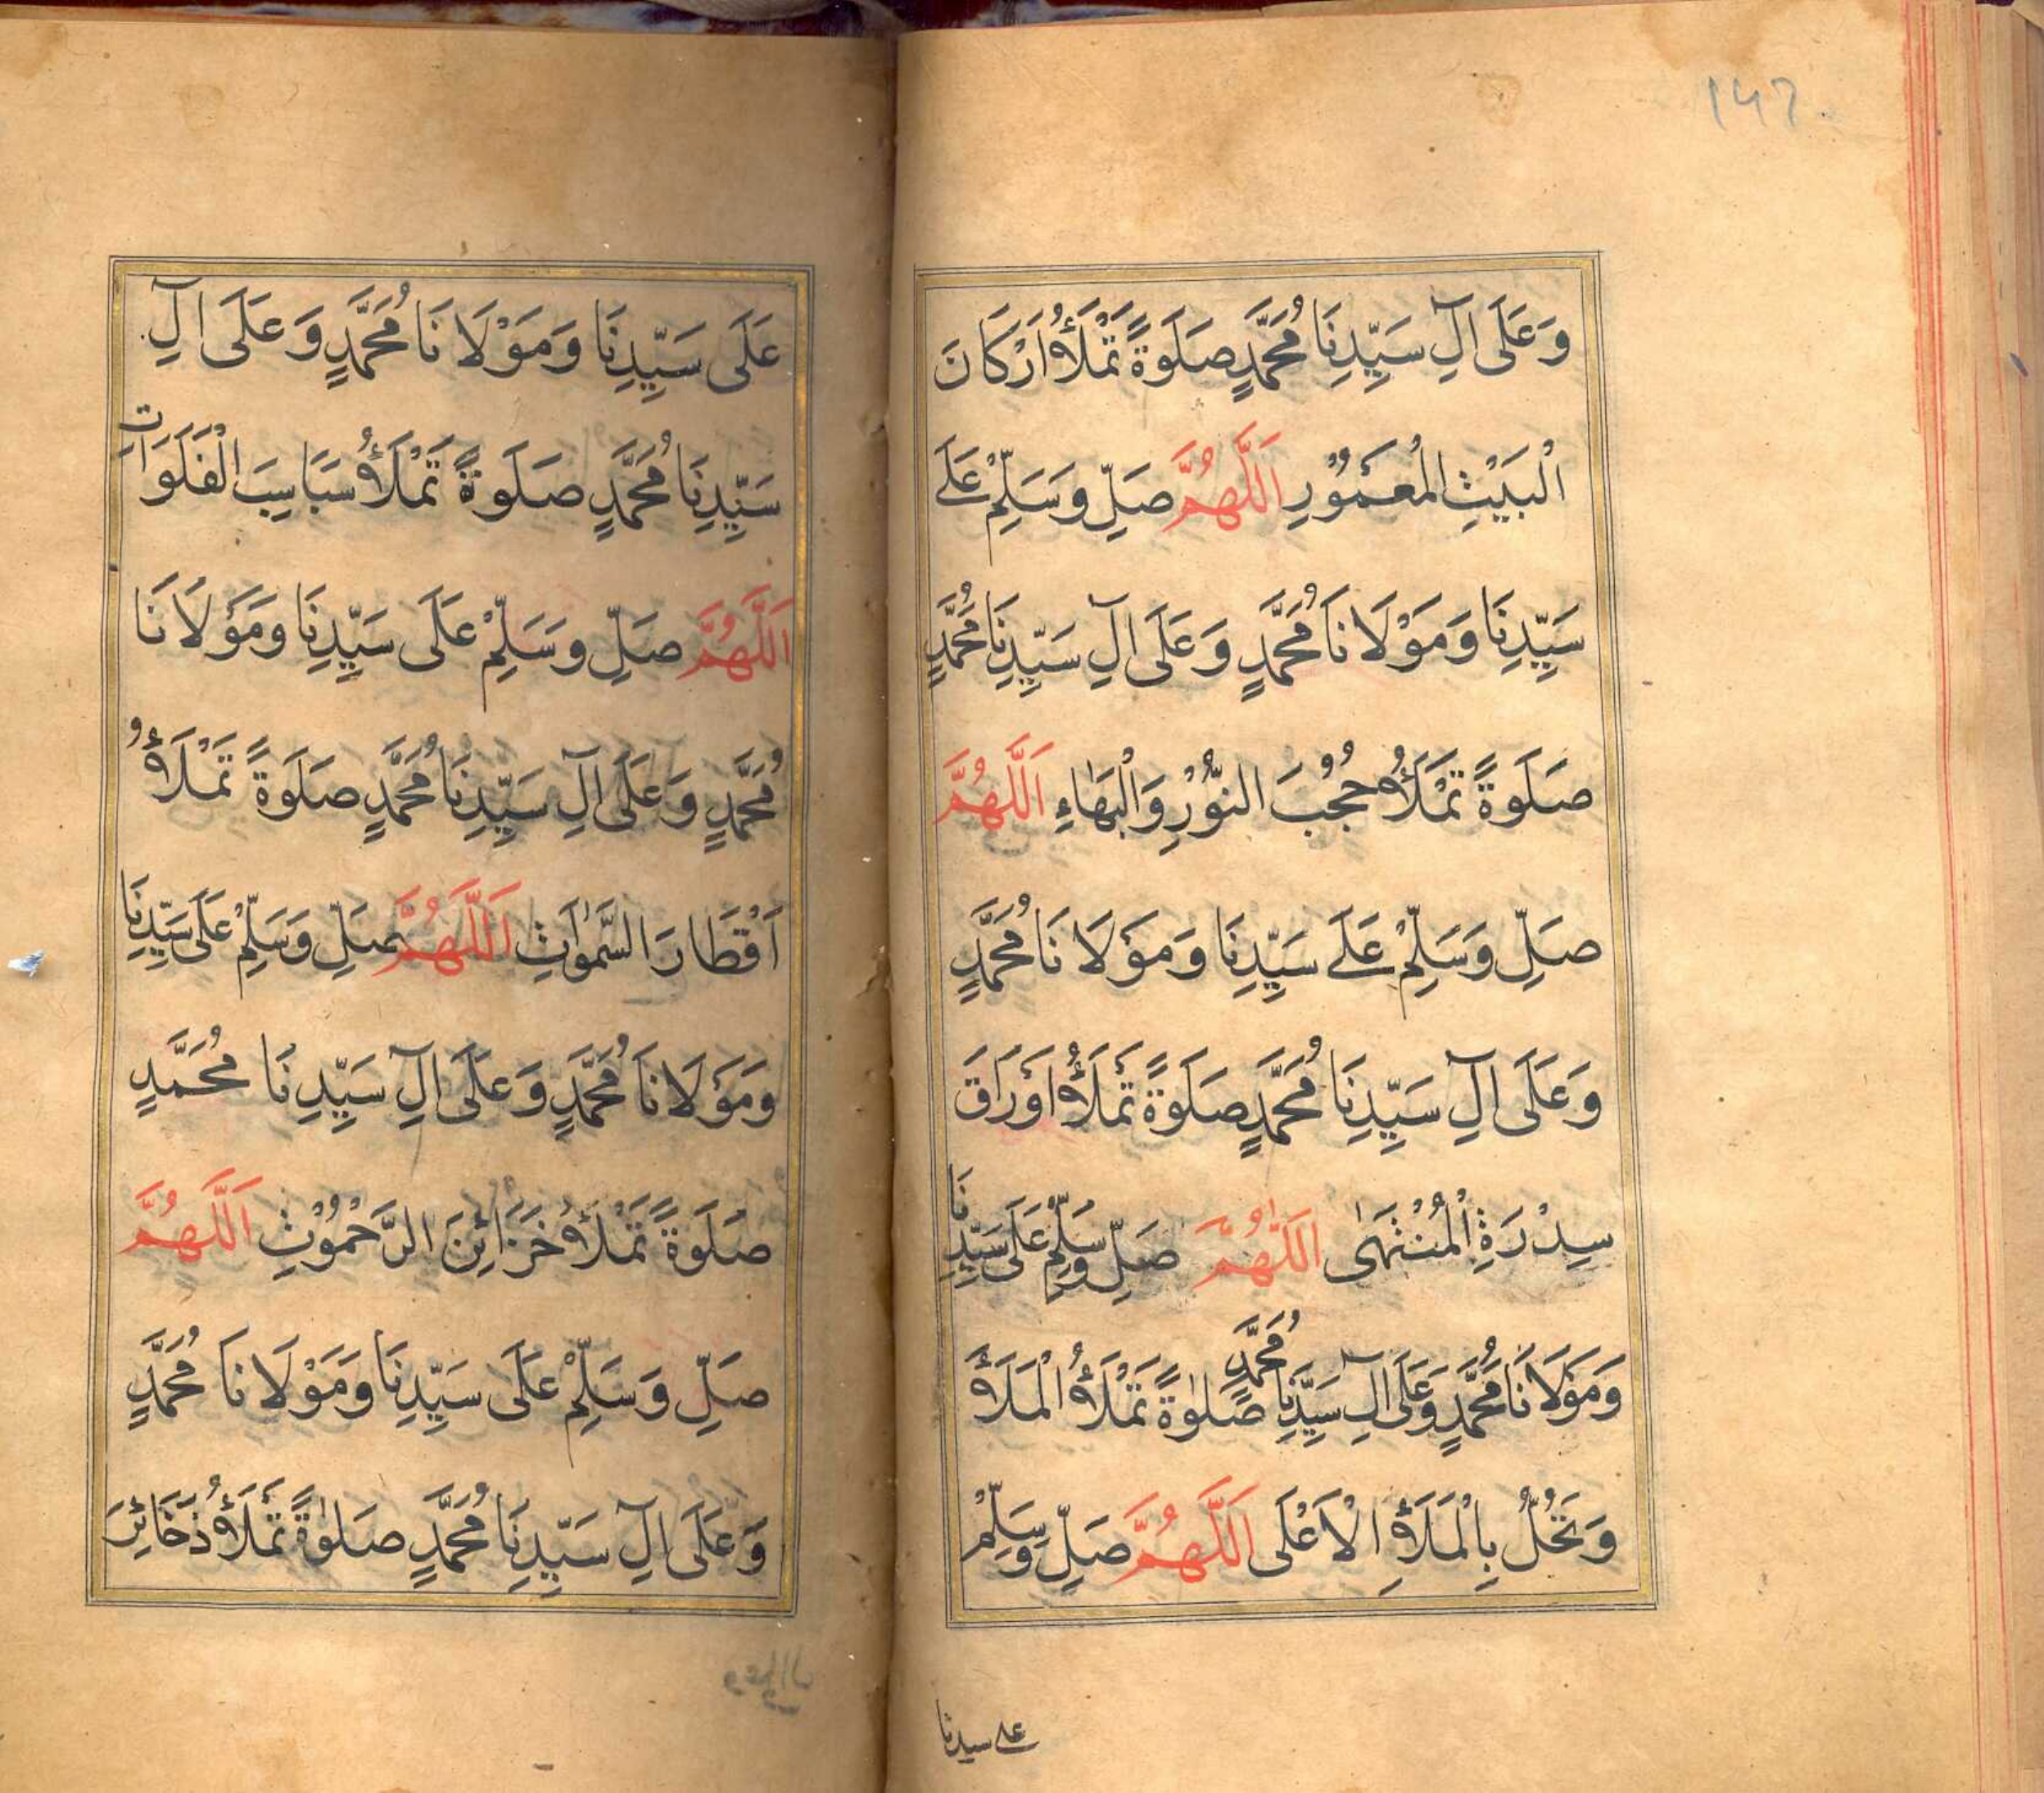 ۱۴۲
وَعَلَى اٰلِ سَيِّدِنَا مُحَمَّدٍ صَلَوةً تَمْلَأُ اَرْكَانَ
الْبَيْتِ الْمَعْمُوْرِ اَللَّهُمَّ صَلِّ وَسَلِّمْ عَلَے
سَيِّدِنَا وَمَوْلَانَا مُحَمَّدٍ وَعَلَى اٰلِ سَيِّدِنَا مُحَمَّدٍ
صَلَوةً تَمْلَأُ حُجُبَ النُّوْرِ وَالْبَهَاءِ اَللَّهُمَّ
صَلِّ وَسَلِّمْ عَلَے سَيِّدِنَا وَمَوْلَانَا مُحَمَّدٍ
وَعَلَى اٰلِ سَيِّدِنَا مُحَمَّدٍ صَلَوةً تَمْلَأُ اَوْرَاقَ
سِدْرَةِ الْمُنْتَهٰى اَللّٰهُمَّ صَلِّ وَسَلِّمْ عَلَى سَيِّدِنَا
وَمَوْلَانَا مُحَمَّدٍ وَعَلَى اٰلِ سَيِّدِنَا مُحَمَّدٍ صَلٰوةً تَمْلَأُ الْمَلَأَ
وَتَحُلُّ بِالْمَلَأِ الْاَعْلَى اَللَّهُمَّ صَلِّ وَسَلِّمْ
علے سيدنا
عَلَى سَيِّدِنَا وَمَوْلَانَا مُحَمَّدٍ وَعَلَى اٰلِ
سَيِّدِنَا مُحَمَّدٍ صَلَوةً تَمْلَأُ سَبَاسِبَ الْفَلَوَاتِ
اَللَّهُمَّ صَلِّ وَسَلِّمْ عَلَى سَيِّدِنَا وَمَوْلَانَا
مُحَمَّدٍ وَعَلَى اٰلِ سَيِّدِنَا مُحَمَّدٍ صَلَوةً تَمْلَأُ
اَقْطَارَ السَّمٰوَاتِ اَللَّهُمَّ صَلِّ وَسَلِّمْ عَلَى سَيِّدِنَا
وَمَوْلَانَا مُحَمَّدٍ وَعَلَى اٰلِ سَيِّدِنَا مُحَمَّدٍ
صَلَوةً تَمْلَأُ خَزَائِنَ الرَّحْمُوْتِ اَللَّهُمَّ
صَلِّ وَسَلِّمْ عَلَى سَيِّدِنَا وَمَوْلَانَا مُحَمَّدٍ
وَعَلَى اٰلِ سَيِّدِنَا مُحَمَّدٍ صَلٰوةً تَمْلَأُ ذَخَائِرَ